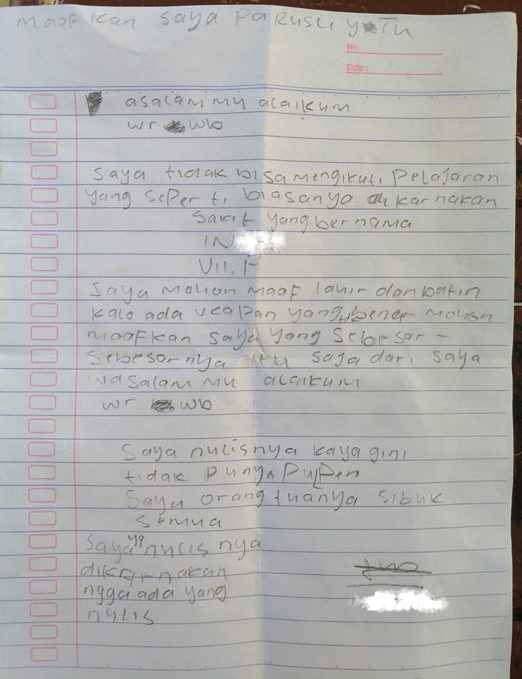 maafkan saya PaRusu
No:
Date:
asalam mu alaikum
wr wb
saya tidak bisa mengikuti Pelajaran
yang seperti biasanya di karnakan
Sakit yang bernama
IN
VII.1
saya mohon maaf lahir dan batin
kalo ada ucapan yang bener mohon
maafkan saya yang sebesar-
sebesarnya itu saja dari saya
wasalam mu alaikum
wr wb
saya nulisnya kaya gini
tidak Punya PulPen
saya orang tuanya sibuk
semua
saya yg nulis nya
dikarnakan
ngga ada yang
nulis